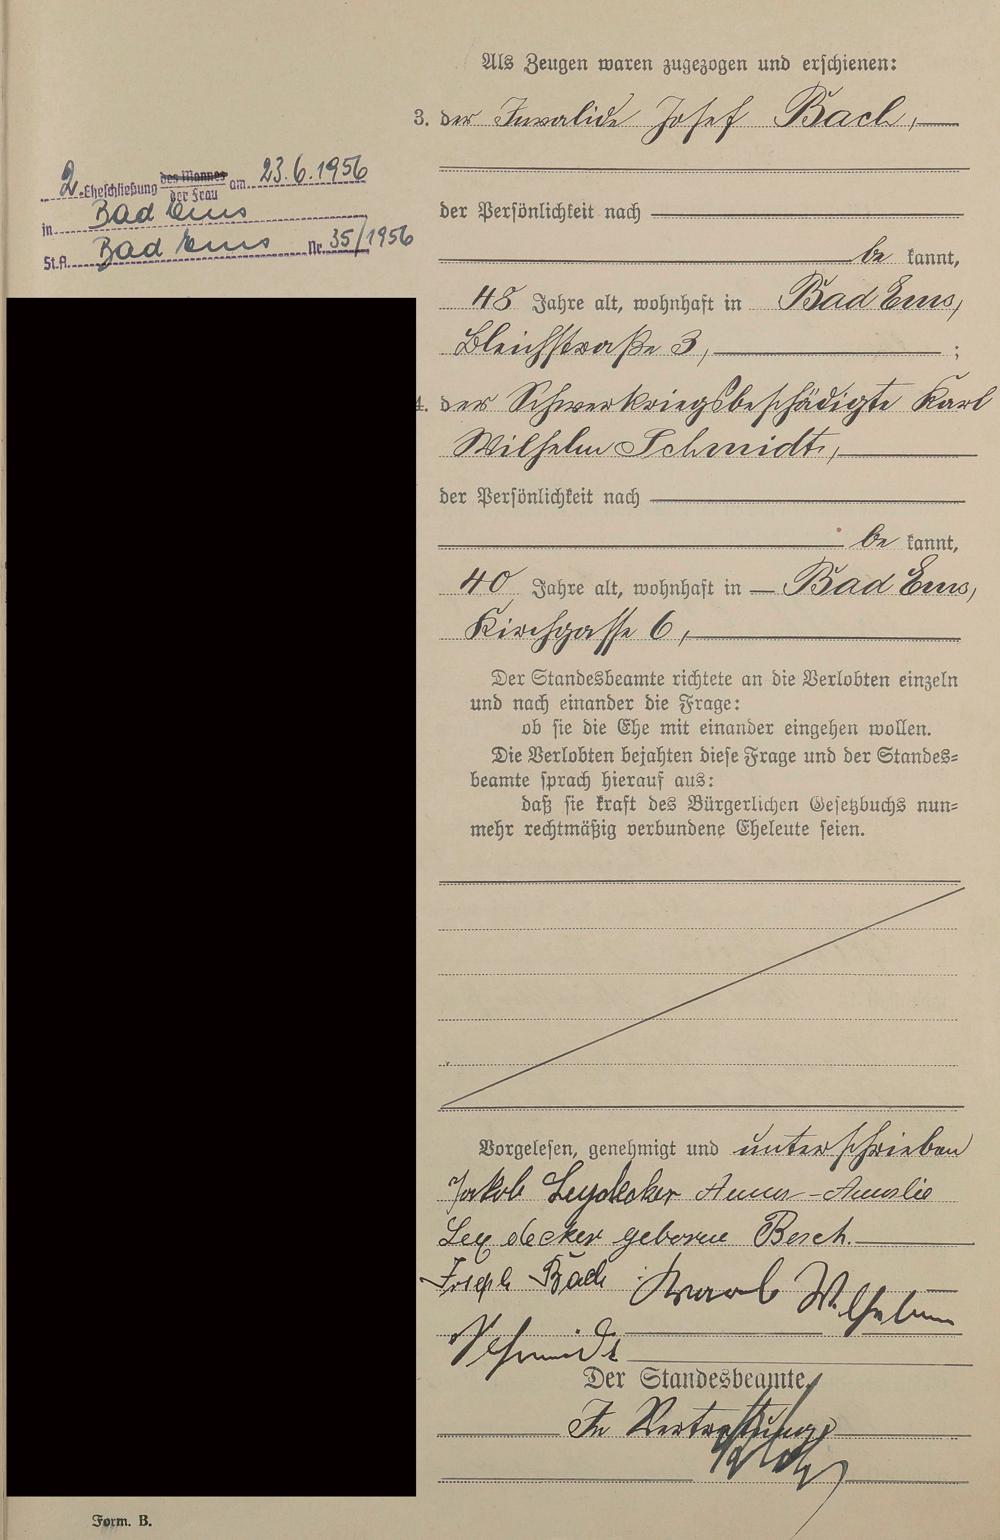 Als Zeugen waren zugezogen und erschienen:
3. der Invalide Josef Bach,
2. Eheschließung des Mannes der Frau am 23.6.1956
in Bad Ems
St.A. Bad Ems Nr. 35/1956
der Persönlichkeit nach
be kannt,
48 Jahre alt, wohnhaft in Bad Ems,
Bleichstraße 3, ;
4. der Schwerkriegsbeschädigte Karl
Wilhelm Schmidt,
der Persönlichkeit nach
be kannt,
40 Jahre alt, wohnhaft in Bad Ems,
Kirchgasse 6,
Der Standesbeamte richtete an die Verlobten einzeln
und nach einander die Frage:
ob sie die Ehe mit einander eingehen wollen.
Die Verlobten bejahten diese Frage und der Standes=
beamte sprach hierauf aus:
daß sie kraft des Bürgerlichen Gesetzbuchs nun=
mehr rechtmäßig verbundene Eheleute seien.
Vorgelesen, genehmigt und unterschrieben
Jakob Leydecker Anna-Amalie
Leydecker geborne Besch.
Joseph Bach Karl Wilhelm
Schmidt
Der Standesbeamte.
In Vertretung
Form. B.